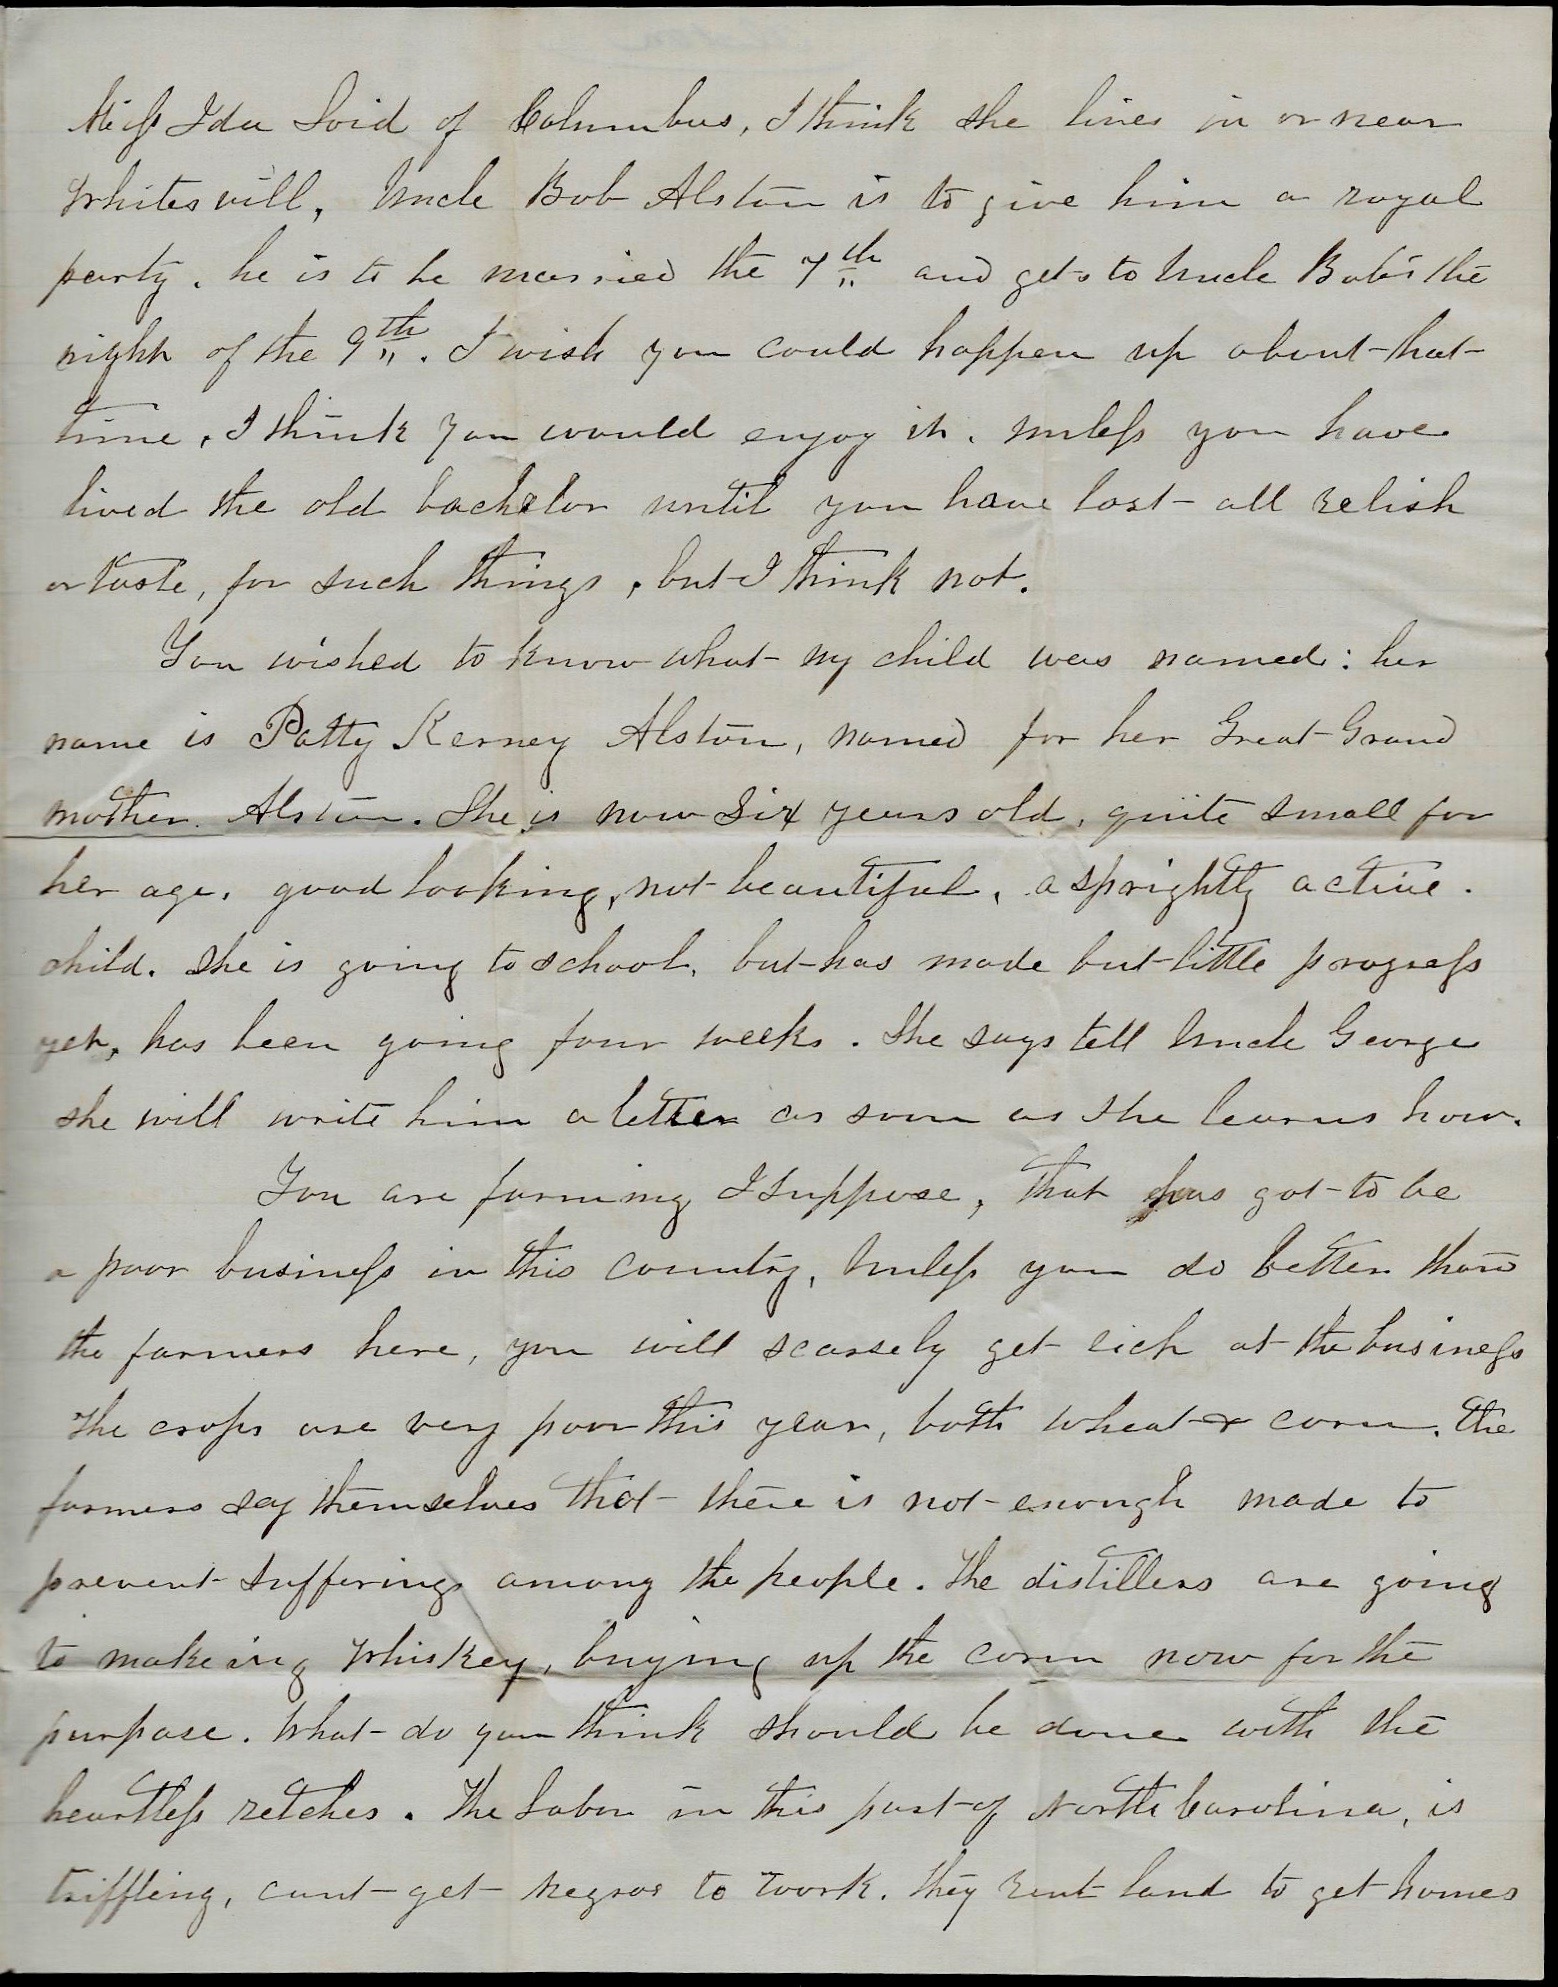 Miss Ida Loid of Columbus, I think she lives in or near
Whitesvill, Uncle Bob Alston is to give him a royal
party. he is to be married the 7th and gets to Uncle Bob's the
night of the 9th. I wish you could happen up about that
time, I think you would enjoy it. unless you have
lived the old bachelor until you have lost all relish
or taste, for such things, but I think not.
You wished to know what my child was named: her
name is Patty Kerney Alston, named for her Great Grand
mother Alston. She is now Six years old, quite small for
her age, good looking, not beautiful, a sprightly active
child. She is going to school, but has made but little progress
yet, has been going four weeks. She says tell Uncle George
she will write him a letter as soon as she learns how.
You are farming I suppose, that has got to be
a poor business in this country, Unless you do better than
the farmers here, you will scarsely get rich at the business
The crops are very poor this year, both wheat & corn. The
farmers say themselves that there is not enough made to
prevent sufferings among the people. The distillers are going
to makeing Whiskey, buying up the corn now for the
purpose. What do you think should be done with the
heartless retches. The Labor in this part of North Carolina, is
triffling, cant get negros to work. They rent land to get homes